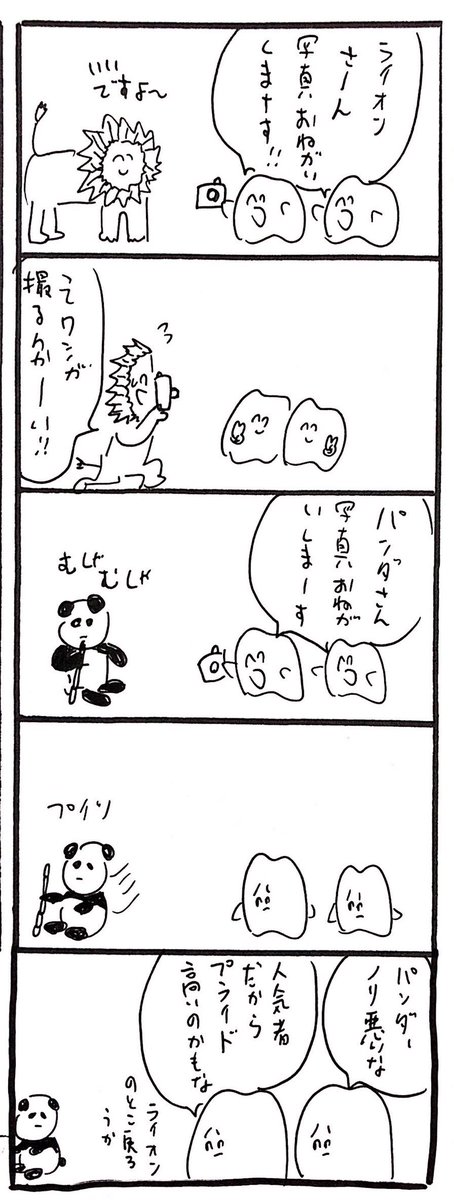 ライオン
さーん
写真おねがい
しまーす!!
いいですよ〜
ってワシが
撮るんかーい!!
パンダさん
写真おねが
いしまーす
むしゃ
むしゃ
プイッ
パンダー
ノリ悪いな
人気者
だから
プライド
高いのかもな
ライオン
のとこ戻ろ
うか